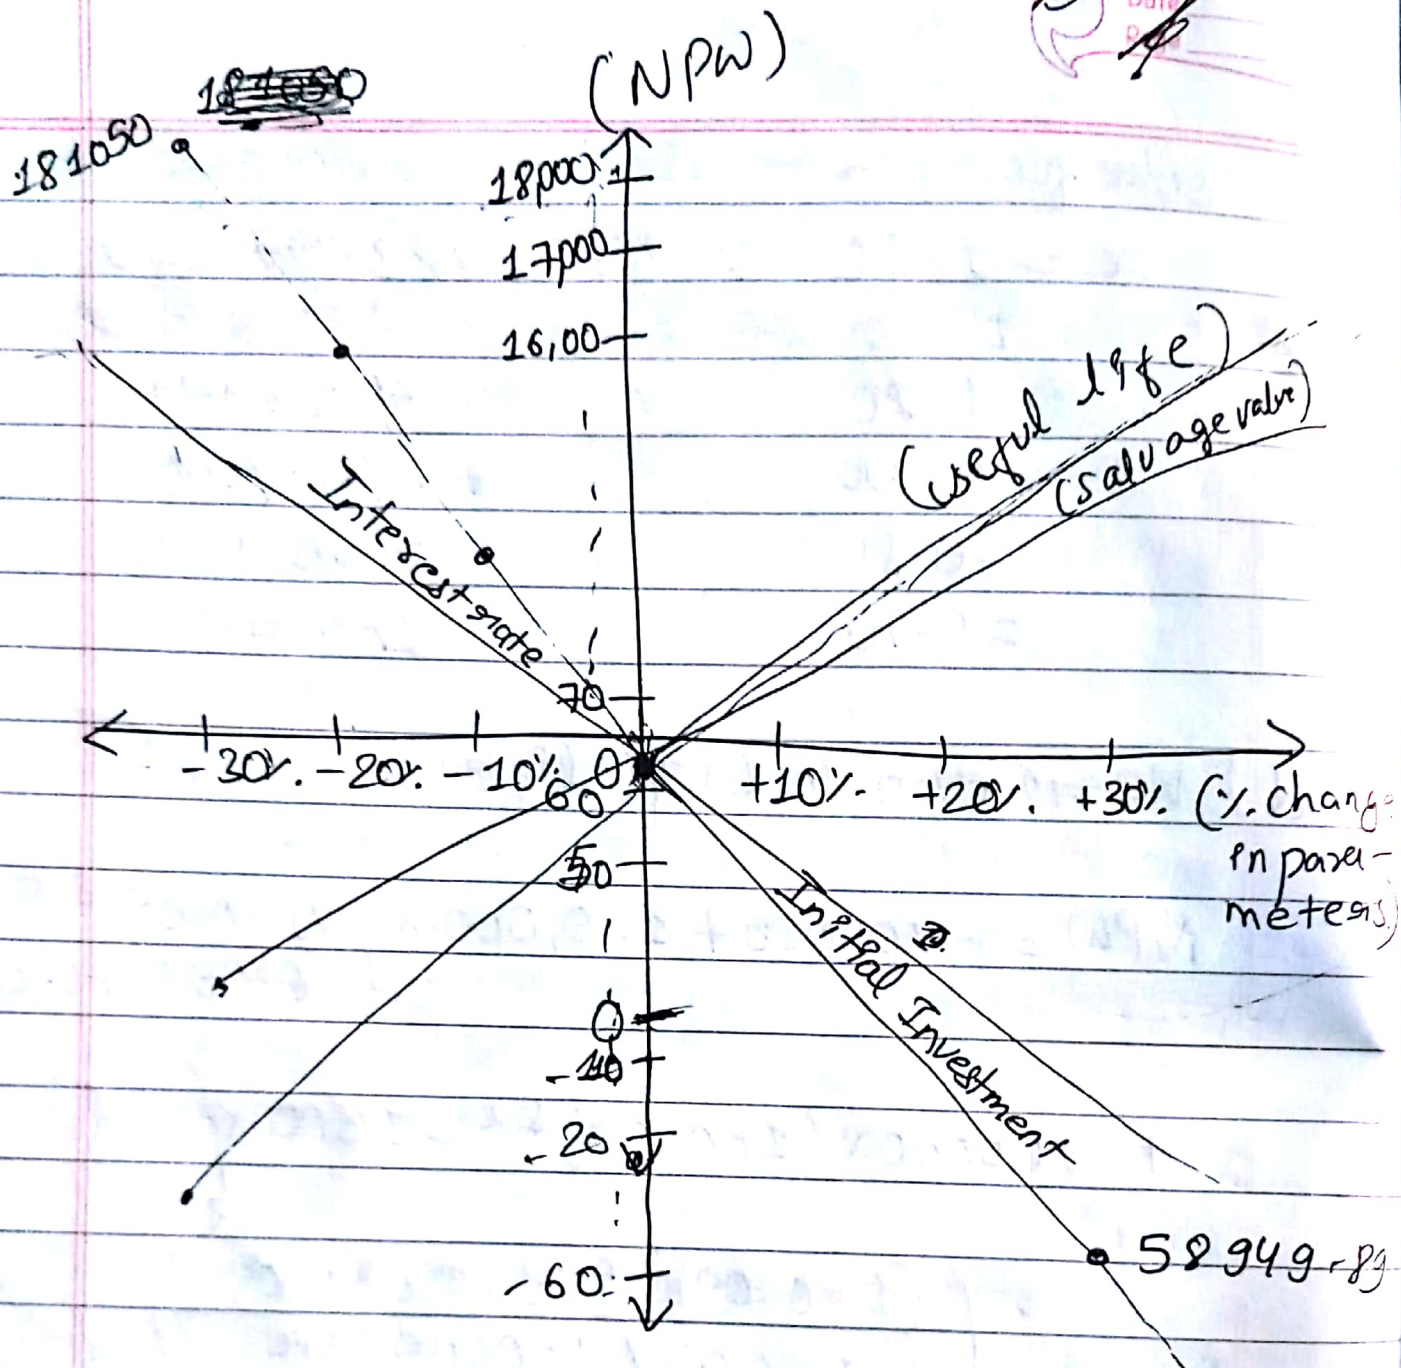 (NPW)
181050
18,000
17,000
16,00
(useful life)
(salvage value)
Interest rate
70
-30%. -20%. -10%. 0 +10%. +20%. +30%. (%. Change
in para-
meters)
60
50
Initial Investment
0
-10
-20
-60
58949.89